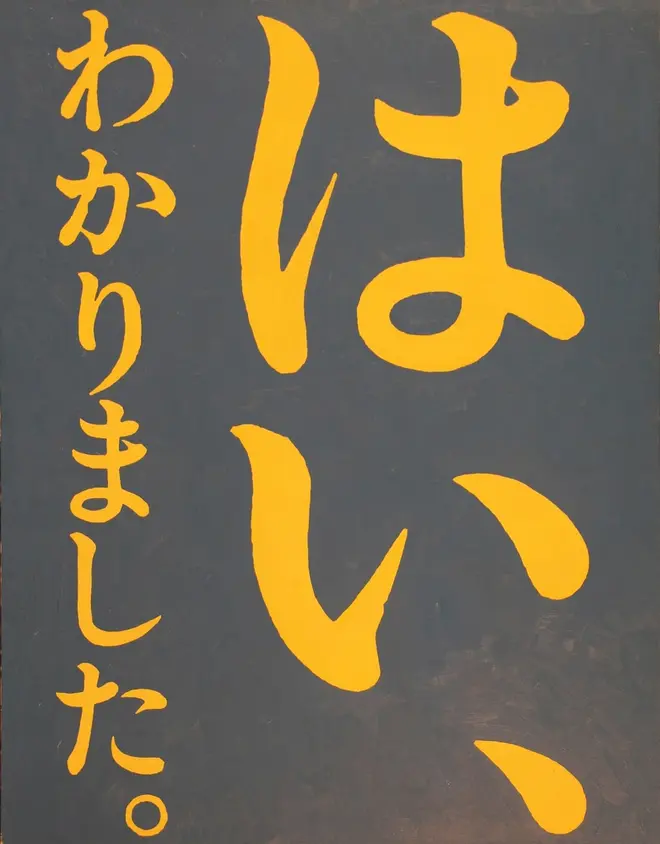 はい、
わかりました。